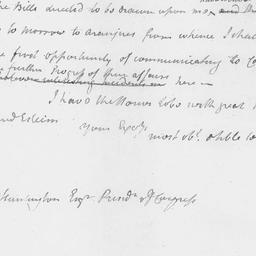 the Bills directed to be drawn upon me, and the
to morrow to Aranjues from whence I shall
the first opportunity of communicating to Co
the further Progress of these affairs
here —
I have the Honor to be with great
and Esteem
Your Excys
most obt. & hble
Huntington Esqr. Presidt of Congress